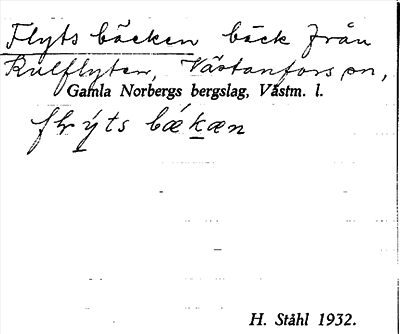 Flyts bäcken bäck från
Kulflyten, Västanfors sn,
Gamla Norbergs bergslag, Västm. l.
flýts bækæn
H. Ståhl 1932.